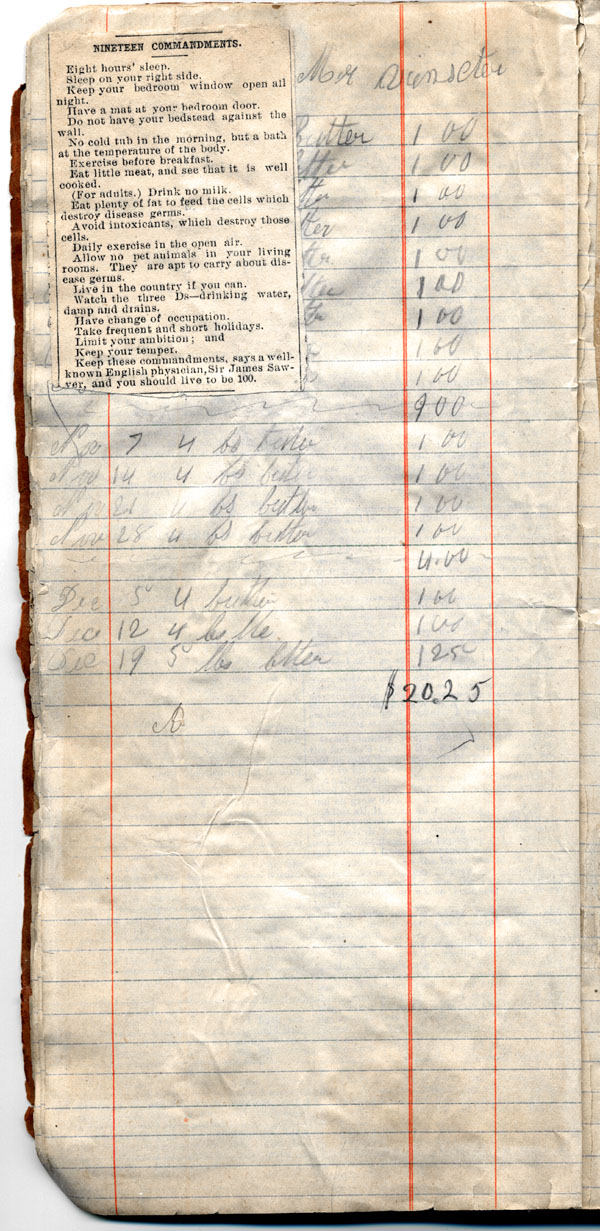 NINETEEN COMMANDMENTS.
Eight hours' sleep.
Sleep on your right side.
Keep your bedroom window open all
night.
Have a mat at your bedroom door.
Do not have your bedstead against the
wall.
No cold tub in the morning, but a bath
at the temperature of the body.
Exercise before breakfast.
Eat little meat, and see that it is well
cooked.
(For adults.) Drink no milk.
Eat plenty of fat to feed the cells which
destroy disease germs.
Avoid intoxicants, which destroy those
cells.
Daily exercise in the open air.
Allow no pet animals in your living
rooms. They are apt to carry about dis-
ease germs.
Live in the country if you can.
Watch the three Ds—drinking water,
damp and drains.
Have change of occupation.
Take frequent and short holidays.
Limit your ambition; and
Keep your temper.
Keep these commandments, says a well-
known English physician, Sir James Saw-
yer, and you should live to be 100.
butter 1 00
tter 1 00
tter 1 00
tter 1 00
tter 1 00
tter 1 00
tter 1 00
1 00
1 00
9 00
Nov 7 4 lbs butter 1 00
Nov 14 4 lbs butter 1 00
Nov 21 4 lbs butter 1 00
Nov 28 4 lbs butter 1 00
4.00
Dec 5 4 butter 1 00
Dec 12 4 1 00
Dec 19 5 lbs btter 1 25
$20.25